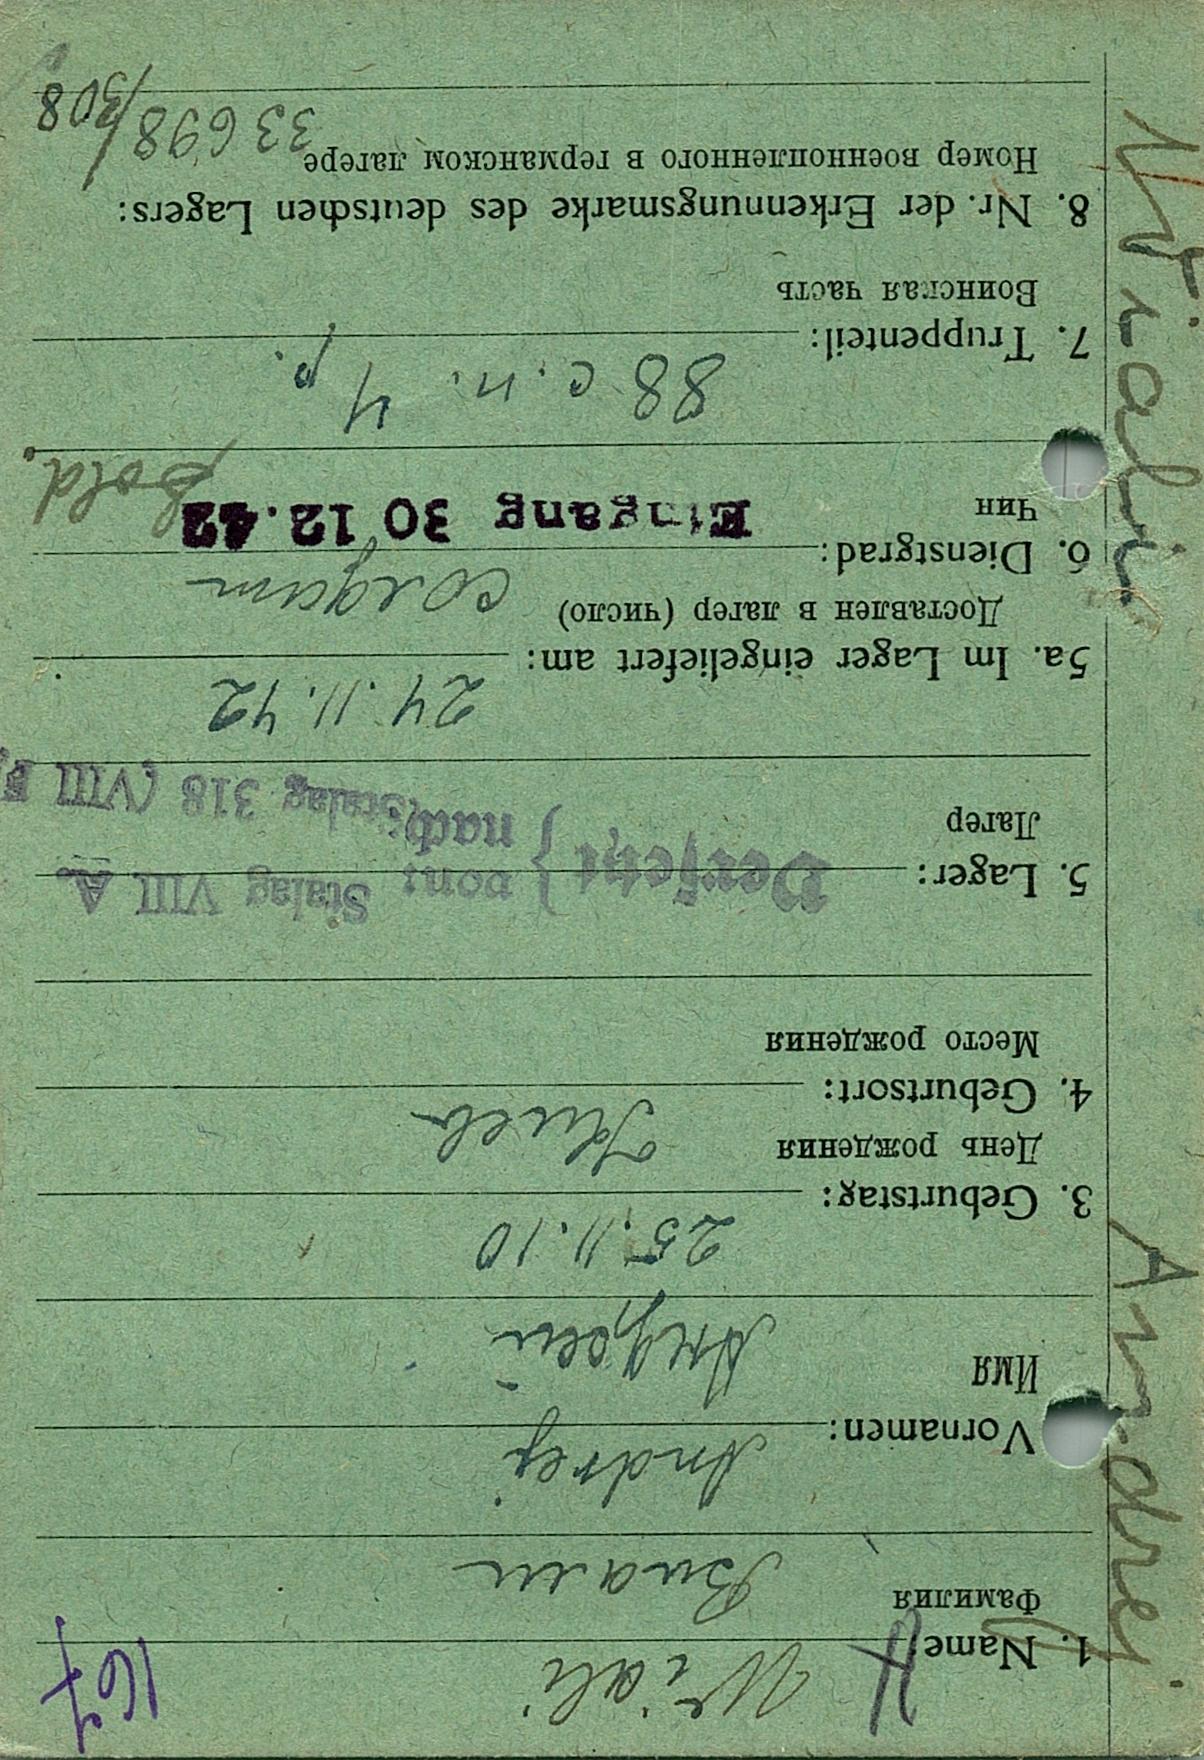 Wiali Andrej
167
1. Name: Wiali
Фамилия Виали
Vornamen: Andrej
Имя Андрей
3. Geburtstag: 25.11.10
День рождения
4. Geburtsort: Киев
Место рождения
5. Lager: Versetzt } von: Stalag VIII A.
Лагер nach Stalag 318 (VIII F)
5a. Im Lager eingeliefert am: 24.11.42
Доставлен в лагер (число)
6. Dienstgrad: солдат
Чин Eingang 30 12.42 Sold.
7. Truppenteil: 88 с.п. 4 р.
Воинская часть
8. Nr. der Erkennungsmarke des deutschen Lagers:
Номер военнопленного в германском лагере 33698/308